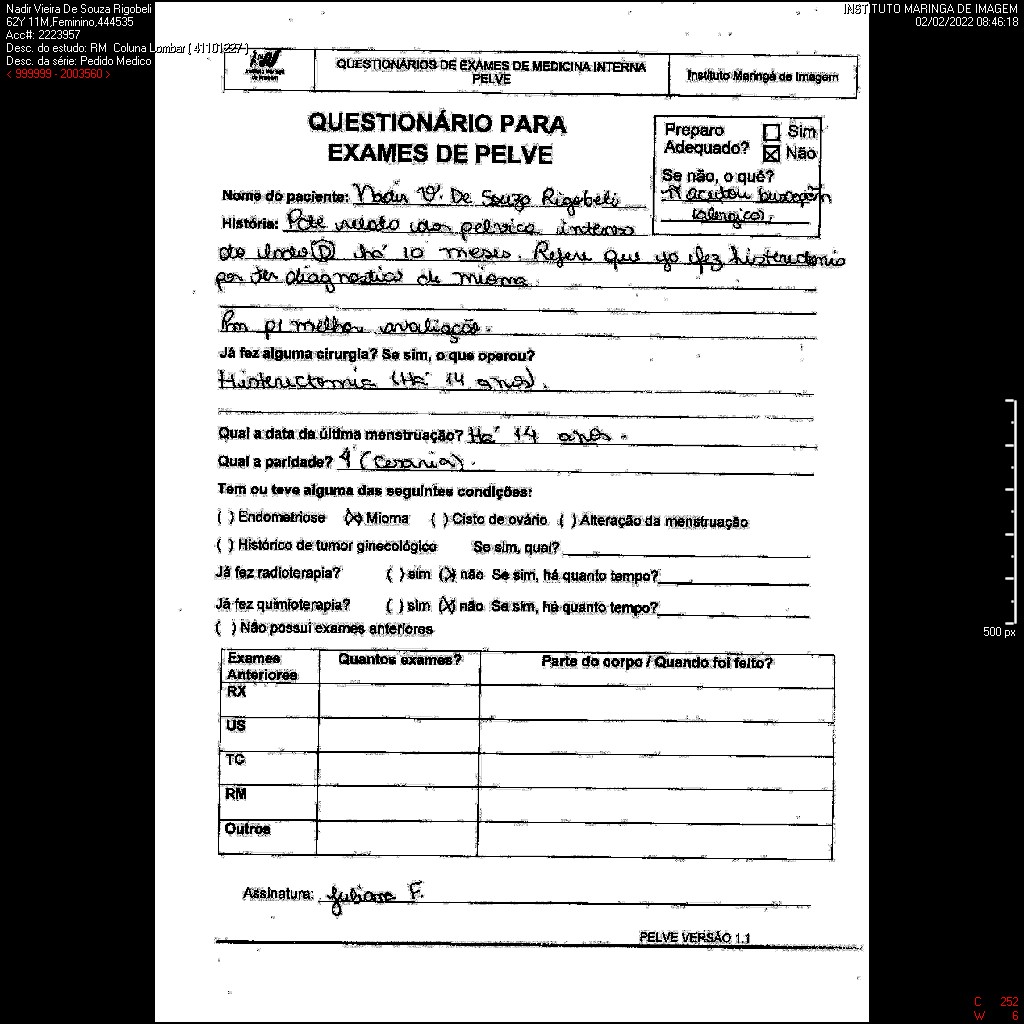 Nadir Vieira De Souza Rigobeli
62Y 11M,Feminino,444535
Acc#: 2223957
Desc. do estudo: RM Coluna Lombar ( 41101227 )
Desc. da série: Pedido Medico
< 999999 - 2003560 >
INSTITUTO MARINGA DE IMAGEM
02/02/2022 08:46:18
QUESTIONÁRIOS DE EXAMES DE MEDICINA INTERNA
PELVE
Instituto Maringá de Imagem
QUESTIONÁRIO PARA
EXAMES DE PELVE
Preparo
Adequado?
Sim
Não
Se não, o quê?
Ñ aceitou buscopan
(alérgica).
Nome do paciente: Nadir V. De Souza Rigobeli
História: Pcte relata dor pélvica intensa
do lado (D) há 10 meses. Refere que ja fez histerectomia
por ter diagnostico de mioma.
Rm p/ melhor avaliação.
Já fez alguma cirurgia? Se sim, o que operou?
Histerectomia (Há 14 anos).
Qual a data da última menstruação? Há 14 anos.
Qual a paridade? (Cesaria).
Tem ou teve alguma das seguintes condições:
( ) Endometriose (X) Mioma ( ) Cisto de ovário ( ) Alteração da menstruação
( ) Histórico de tumor ginecológico Se sim, qual?
Já fez radioterapia? ( ) sim (X) não Se sim, há quanto tempo?
Já fez quimioterapia? ( ) sim (X) não Se sim, há quanto tempo?
( ) Não possui exames anteriores
Exames
Anteriores
Quantos exames?
Parte do corpo / Quando foi feito?
RX
US
TC
RM
Outros
Assinatura: Juliana F.
PELVE VERSÃO 1.1
500 px
C 252
W 6